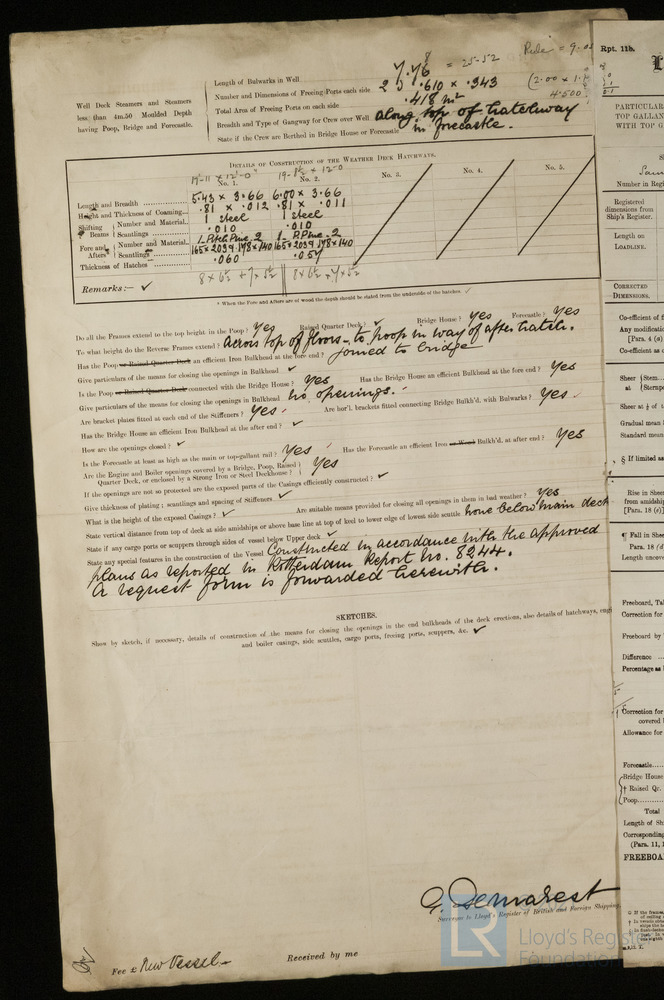 Well Deck Steamers and Steamers
less than 4m.50 Moulded Depth
having Poop, Bridge and Forecastle.
Length of Bulwarks in Well 7.76 = 25-52
Number and Dimensions of Freeing Ports each side 2 .610 × .343
Total Area of Freeing Ports on each side .418 m²
Breadth and Type of Gangway for Crew over Well along top of hatchway
State if the Crew are Berthed in Bridge House or Forecastle in forecastle.
DETAILS OF CONSTRUCTION OF THE WEATHER DECK HATCHWAYS.
No. 1. No. 2. No. 3. No. 4. No. 5.
Length and Breadth 5.43 × 3.66 6.00 × 3.66
Height and Thickness of Coaming .81 × .012 .81 × .011
Shifting Beams Number and Material 1 steel 1 steel
Scantlings .010 .010
Fore and Afters Number and Material 1_ Pitch Pine _ 2 1_ P.Pine _ 2
Scantlings 165 × 203 & 178 × 140 165 × 203 & 178 × 140
Thickness of Hatches .060 .057
Remarks:—
* When the Fore and Afters are of wood the depth should be stated from the underside of the hatches.
Do all the Frames extend to the top height in the Poop? Yes Raised Quarter Deck? Bridge House? Yes Forecastle? Yes
To what height do the Reverse Frames extend? across top of floors _ to poop in way of after hatch.
Has the Poop or Raised Quarter Deck an efficient Iron Bulkhead at the fore end? joined to bridge
Give particulars of the means for closing the openings in Bulkhead
Is the Poop or Raised Quarter Deck connected with the Bridge House? Yes Has the Bridge House an efficient Bulkhead at the fore end? Yes
Give particulars of the means for closing the openings in Bulkhead no openings.
Are bracket plates fitted at each end of the Stiffeners? Yes. Are hor'l. brackets fitted connecting Bridge Bulkh'd. with Bulwarks? Yes
Has the Bridge House an efficient Iron Bulkhead at the after end?
How are the openings closed?
Is the Forecastle at least as high as the main or top-gallant rail? Yes Has the Forecastle an efficient Iron or Wood Bulkh'd. at after end? Yes
Are the Engine and Boiler openings covered by a Bridge, Poop, Raised
Quarter Deck, or enclosed by a Strong Iron or Steel Deckhouse? Yes
If the openings are not so protected are the exposed parts of the Casings efficiently constructed?
Give thickness of plating; scantlings and spacing of Stiffeners
What is the height of the exposed Casings? Are suitable means provided for closing all openings in them in bad weather? Yes
State vertical distance from top of deck at side amidships or above base line at top of keel to lower edge of lowest side scuttle none below main deck
State if any cargo ports or scuppers through sides of vessel below Upper deck
State any special features in the construction of the Vessel Constructed in accordance with the approved
plans as reported in Rotterdam Report No. 8244.
A request form is forwarded herewith.
SKETCHES.
Show by sketch, if necessary, details of construction of the means for closing the openings in the end bulkheads of the deck erections, also details of hatchways, engi
and boiler casings, side scuttles, cargo ports, freeing ports, scuppers, &c.
G. Demarest
Surveyor to Lloyd's Register of British and Foreign Shipping
Fee £ New Vessel
Received by me
Rpt. 11b.
PARTICULAR
TOP GALLAN
WITH TOP G
Number in Regi
Registered
dimensions from
Ship's Register.
Length on
LOADLINE.
CORRECTED
DIMENSIONS.
Co-efficient of f
Any modificatio
[Para. 4 (a)
Co-efficient as c
Sheer { Stem
at { Sternpo
Sheer at ⅛ of l
Gradual mean
Standard mean
§ If limited as
Rise in Sheer
from amidship
[Para. 18 (e)]
¶ Fall in Shee
Para. 18 (d
Length uncove
Freeboard, Ta
Correction for
Freeboard by
Difference
Percentage as
Correction for
covered
Allowance for
Forecastle
Bridge House
† Raised Qr.
Poop
Total
Length of Sh
Corresponding
(Para. 11, 1
FREEBOA
LR
Lloyd's Register
Foundation